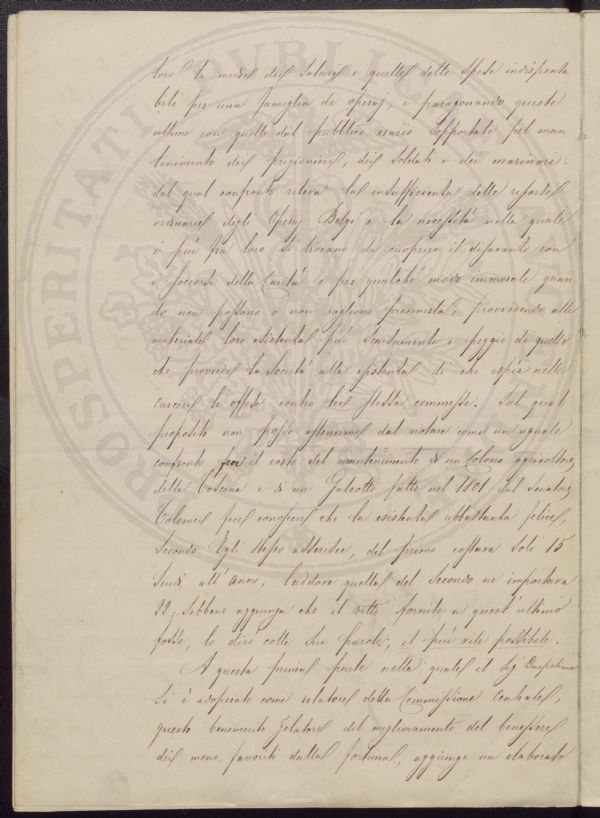 loro le medie dei salarj e quelle delle spese indispensa
bili per una famiglia di operaj, e paragonando queste
ultime con quelle dal pubblico erario sopportate pel man
tenimento dei prigionieri, dei soldati e dei marinari:
dal qual confronto rileva la insufficienza delle risorse
ordinarie degli Operaj Belgi e la necessità nella quale
i più fra loro si trovano di cuoprire il disavanzo con
i soccorsi della Carità o per qualche modo immorale quan
do non possano o non vogliono provvedendo alla
materiale loro esistenza più scarsamente e peggio di quello
che provvede la Società alla esistenza di chi espia nelle
carceri le offese contro lei stessa commesse. Sul qual
proposito non posso astenermi dal notare come un uguale
confronto fra il costo del mantenimento di un Colono agricoltore
della Toscana e di un Galeotto fatto nel 1801 dal Senatore
Tolomei fece conoscere che la esistenza abbastanza felice,
secondo Egli stesso asserisce, del primo costava soli 15
scudi all'anno, laddove quella del secondo ne importava
22; sebbene aggiunga che il vitto fornito a quest'ultimo
fosse, lo dirò colle sue parole, il più vile possibile.
A questa prima parte nella quale il Sig
si è adoperato come relatore della Commissione Centrale,
questo benemerito zelatore del miglioramento del benessere
dei meno favoriti dalla fortuna, aggiunge un elaborato